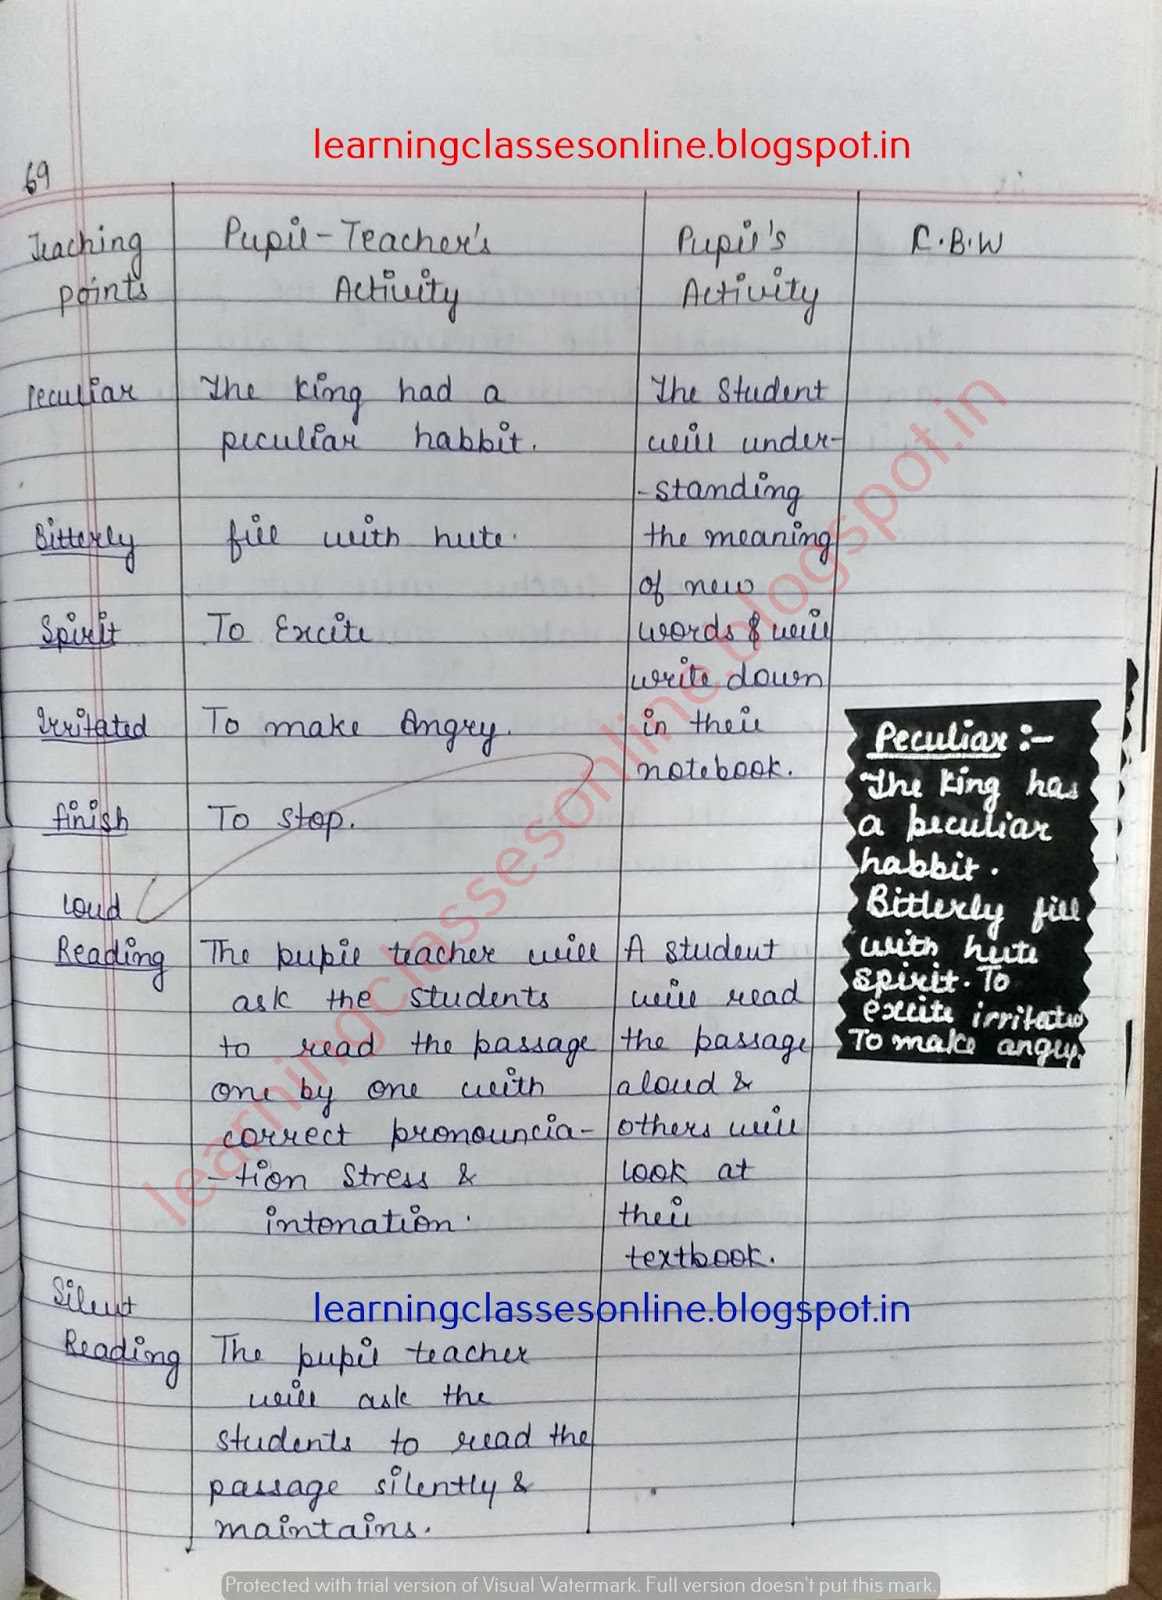 learningclassesonline.blogspot.in
69
Teaching points
Pupil-Teacher's Activity
Pupil's Activity
C.B.W
Peculiar
The King had a
peculiar habbit.
Bitterly
fill with hute.
Spirit
To Excite
Irritated
To make Angry.
finish
To stop.
The Student
will under-
-standing
the meaning
of new
words & will
write down
in their
notebook.
Peculiar :-
The King has
a peculiar
habbit.
Bitterly fill
with hute
spirit. To
excite irritated
To make angry.
Loud
Reading
The pupil teacher will
ask the students
to read the passage
one by one with
correct pronouncia-
-tion stress &
intonation.
A student
will read
the passage
aloud &
others will
look at
their
textbook.
learningclassesonline.blogspot.in
Silent
Reading
The pupil teacher
will ask the
students to read the
passage silently &
maintains.
learningclassesonline.blogspot.in
Protected with trial version of Visual Watermark. Full version doesn't put this mark.